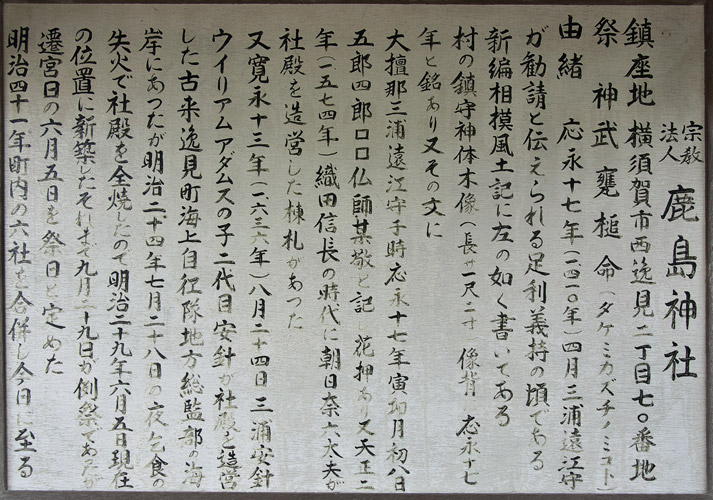 宗教法人 鹿島神社
鎮座地 横須賀市西逸見二丁目七〇番地
祭神 武甕槌命(タケミカズチノミコト)
由緒 応永十七年(一四一〇年)四月三浦遠江守
が勧請と伝えられる足利義持の頃である
新編相模風土記に左の如く書いてある
村の鎮守神体木像(長サ一尺二寸 像背 応永十七
年と銘あり又その文に
大檀那三浦遠江守于時応永十七年寅卯月初八日
五郎四郎口口仏師某敬と記し花押あり又天正二
年(一五七四年)織田信長の時代に朝日奈六太夫が
社殿を造営した棟札があつた
又寛永十三年(一六三六年)八月二十四日三浦安針
ウイリアムアダムスの子二代目安針が社殿を造営
した古来逸見町海上自衛隊地方総監部の海
岸にあつたが明治二十四年七月二十八日の夜乞食の
失火で社殿を全焼したので明治二十九年六月五日現在
の位置に新築したそれまで九月二十九日が例祭であたが
遷宮日の六月五日を祭日と定めた
明治四十一年町内の六社を合併し今日に至る